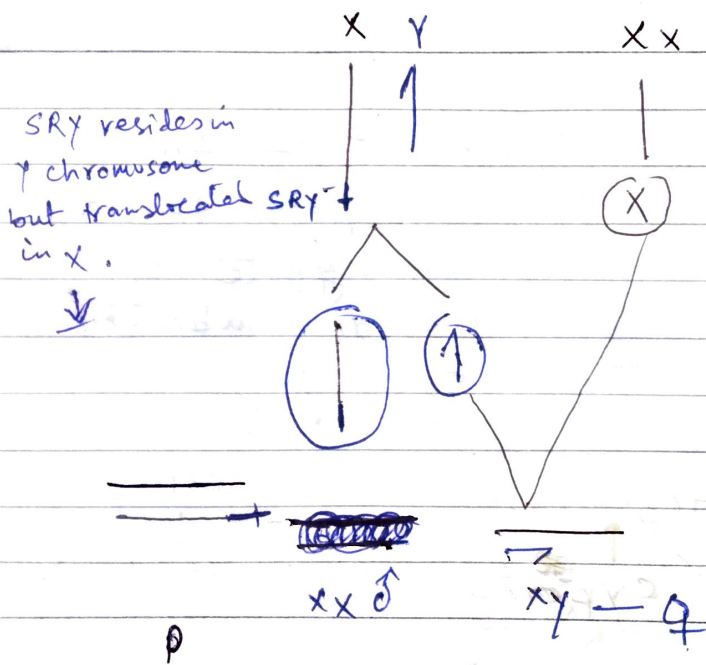 X Y X X
SRY resides in
Y chromosome
but translocated SRY
in X.
X
XX ♂ XY — ♀
P